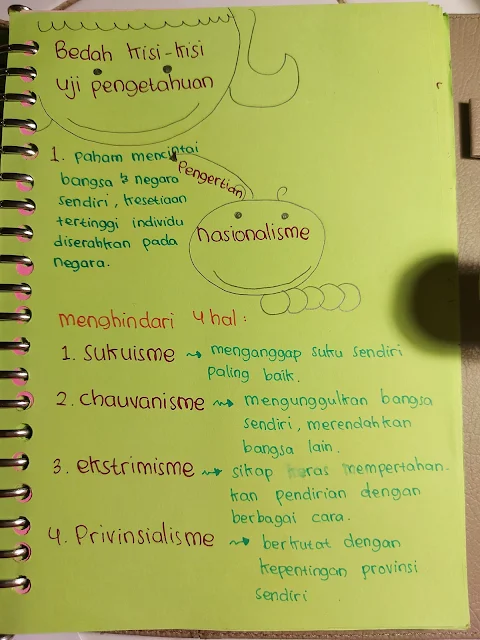 Bedah kisi-kisi
uji pengetahuan
1. paham mencintai
bangsa & negara
sendiri, kesetiaan
tertinggi individu
diserahkan pada
negara.
Pengertian
nasionalisme
menghindari 4 hal :
1. Sukuisme → menganggap suku sendiri
paling baik.
2. chauvanisme → mengunggulkan bangsa
sendiri, merendahkan
bangsa lain.
3. ekstrimisme → sikap keras mempertahan-
kan pendirian dengan
berbagai cara.
4. Privinsialisme → berkutat dengan
kepentingan provinsi
sendiri